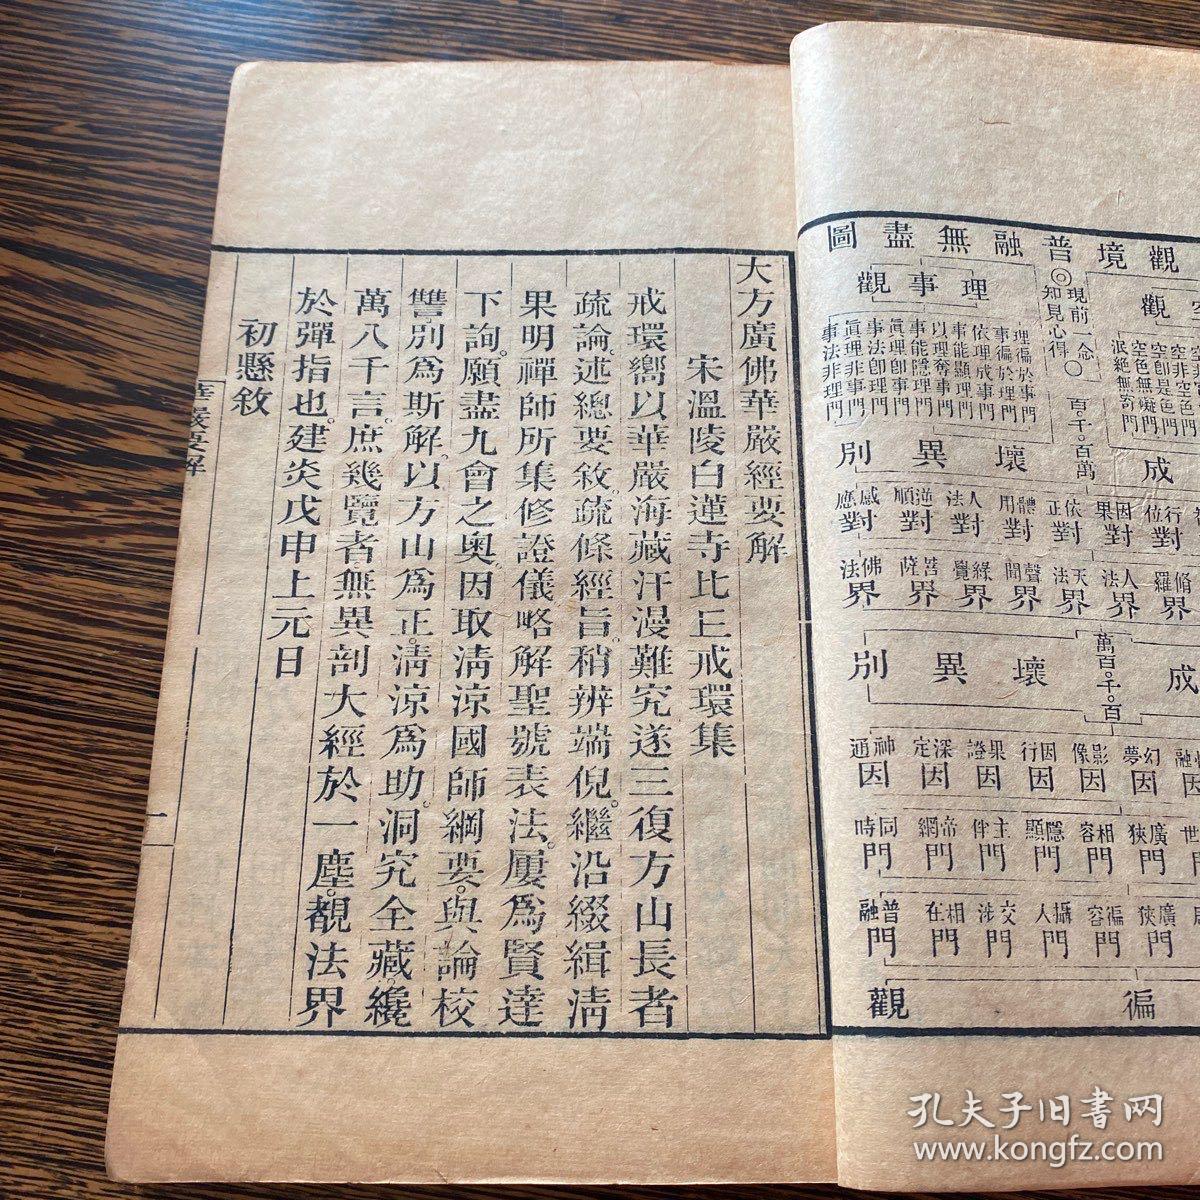 觀境普融無盡圖
觀事理
◎現前一念〇
知見心得
百。千。百萬
理徧於事門
事徧於理門
依理成事門
事能顯理門
以理奪事門
事能隱理門
眞理即事門
事法即理門
眞理非事門
事法非理門
觀
空即是色門
空色無礙門
泯絶無寄門
成 壞異別
行位對
因果對
依正對
體用對
人法對
逆順對
感應對
脩羅界
人法界
天法界
聲聞界
緣覺界
菩薩界
佛法界
萬百。千。百
成 壞異別
幻夢因
影像因
因行因
果證因
深定因
神通因
廣狹門
相容門
隱顯門
主伴門
帝網門
同時門
廣狹門
徧容門
攝入門
交涉門
相在門
普融門
徧 觀
大方廣佛華嚴經要解
宋溫陵白蓮寺比丘戒環集
戒環嚮以華嚴海藏汗漫難究遂三復方山長者
疏論。述總要敘。疏條經旨。稍辨端倪。繼沿綴緝清
果明禪師所集修證儀略解聖號表法。屢爲賢達
下詢。願盡九會之奥。因取清涼國師綱要。與論校
讐。別爲斯解。以方山爲正。清涼爲助。洞究全藏。纔
萬八千言。庶幾覽者。無異剖大經於一塵。覩法界
於彈指也。建炎戊申上元日
初懸敘
華嚴要解
一
孔夫子旧书网
www.kongfz.com